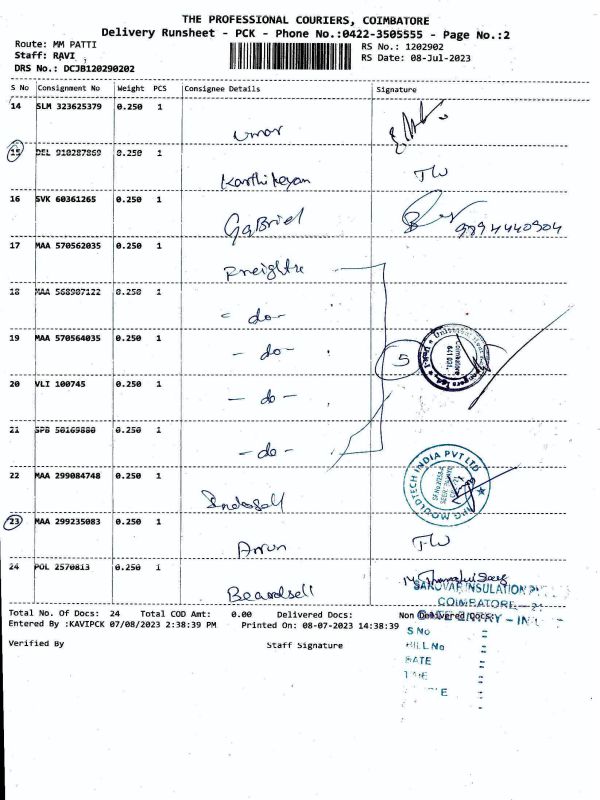 THE PROFESSIONAL COURIERS, COIMBATORE
Delivery Runsheet - PCK - Phone No.:0422-3505555 - Page No.:2
Route: MM PATTI
Staff: RAVI
DRS No.: DCJB120290202
RS No.: 1202902
RS Date: 08-Jul-2023
S No Consignment No Weight PCS Consignee Details Signature
14 SLM 323625379 0.250 1 Umar
15 DEL 910287869 0.250 1 Karthikeyan TW
16 SVK 60361265 0.250 1 GaBriel 9894440904
17 MAA 570562035 0.250 1 Freightx
18 MAA 568907122 0.250 1 - do -
19 MAA 570564035 0.250 1 - do - 5
20 VLI 100745 0.250 1 - do -
21 SPB 50169880 0.250 1 - do -
22 MAA 299084748 0.250 1 Indosell MOULDTECH INDIA PVT LTD
23 MAA 299235083 0.250 1 Arun TW
24 POL 2570813 0.250 1 Beardsell
SAROVAR INSULATION
COIMBATORE - 21
Total No. Of Docs: 24 Total COD Amt: 0.00 Delivered Docs: Non Delivered Docs:
Entered By :KAVIPCK 07/08/2023 2:38:39 PM Printed On: 08-07-2023 14:38:39
Verified By Staff Signature
S No :
BILL No :
DATE :
TIME :